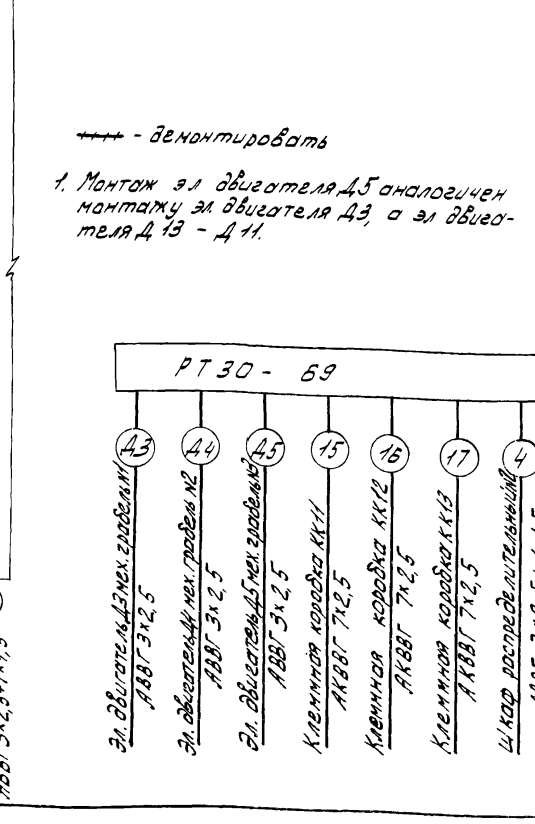 - демонтировать
1. Монтаж эл двигателя Д5 аналогичен
монтажу эл. двигателя Д3, а эл двига-
теля Д 13 - Д 11.
РТ30 - 69
Д3
Д4
Д5
15
16
17
4
Эл. двигатель Д3 мех. грабель №1
АВВГ 3×2,5
Эл. двигатель Д4 мех. грабель №2
АВВГ 3×2,5
Эл. двигатель Д5 мех. грабель №3
АВВГ 3×2,5
Клеммная коробка КК11
АКВВГ 7×2,5
Клеммная коробка КК12
АКВВГ 7×2,5
Клеммная коробка КК13
АКВВГ 7×2,5
Шкаф распределительный №2